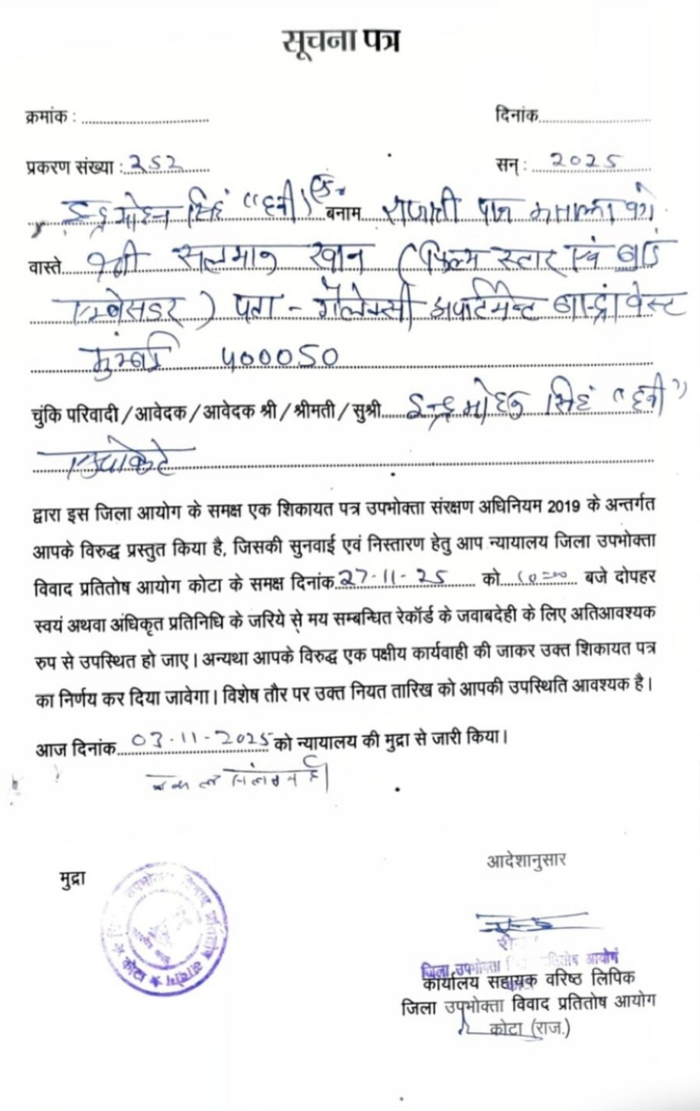 सूचना पत्र
क्रमांक : ....................
दिनांक....................
प्रकरण संख्या : 252
सन् : 2025
इन्द्र मोहन सिंह "हनी" बनाम राजश्री पान मसाला
वास्ते श्री सलमान खान (फिल्म स्टार एवं ब्रांड
एम्बेसडर) पता - गैलेक्सी अपार्टमेन्ट बान्द्रा वेस्ट
मुंबई 400050
चुंकि परिवादी / आवेदक / आवेदक श्री / श्रीमती / सुश्री इन्द्र मोहन सिंह "हनी"
एडवोकेट
द्वारा इस जिला आयोग के समक्ष एक शिकायत पत्र उपभोक्ता संरक्षण अधिनियम 2019 के अन्तर्गत
आपके विरुद्ध प्रस्तुत किया है, जिसकी सुनवाई एवं निस्तारण हेतु आप न्यायालय जिला उपभोक्ता
विवाद प्रतितोष आयोग कोटा के समक्ष दिनांक 27-11-25 को 10=00 बजे दोपहर
स्वयं अथवा अधिकृत प्रतिनिधि के जरिये से मय सम्बन्धित रेकोर्ड के जवाबदेही के लिए अतिआवश्यक
रुप से उपस्थित हो जाए। अन्यथा आपके विरुद्ध एक पक्षीय कार्यवाही की जाकर उक्त शिकायत पत्र
का निर्णय कर दिया जावेगा। विशेष तौर पर उक्त नियत तारिख को आपकी उपस्थिति आवश्यक है।
आज दिनांक 03-11-2025 को न्यायालय की मुद्रा से जारी किया।
नकल संलग्न है
आदेशानुसार
मुद्रा
जिला उपभोक्ता प्रतितोष आयोग
कार्यालय सहायक वरिष्ठ लिपिक
जिला उपभोक्ता विवाद प्रतितोष आयोग
कोटा (राज.)